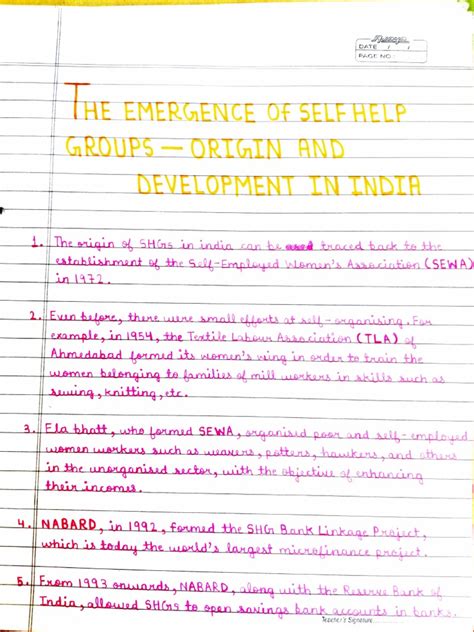 DATE / /
PAGE NO.
THE EMERGENCE OF SELF HELP
GROUPS — ORIGIN AND
DEVELOPMENT IN INDIA
1. The origin of SHGs in india can be traced back to the
establishment of the Self-Employed Women's Association (SEWA)
in 1972.
2. Even before, there were small efforts at self-organising. For
example, in 1954, the Textile Labour Association (TLA) of
Ahmedabad formed its women's wing in order to train the
women belonging to families of mill workers in skills such as
sewing, knitting, etc.
3. Ela bhatt, who formed SEWA, organised poor and self-employed
women workers such as weavers, potters, hawkers, and others
in the unorganised sector, with the objective of enhancing
their incomes.
4. NABARD, in 1992, formed the SHG Bank Linkage Project,
which is today the world's largest microfinance project.
5. From 1993 onwards, NABARD, along with the Reserve Bank of
India, allowed SHGs to open savings bank accounts in banks.
Teacher's Signature